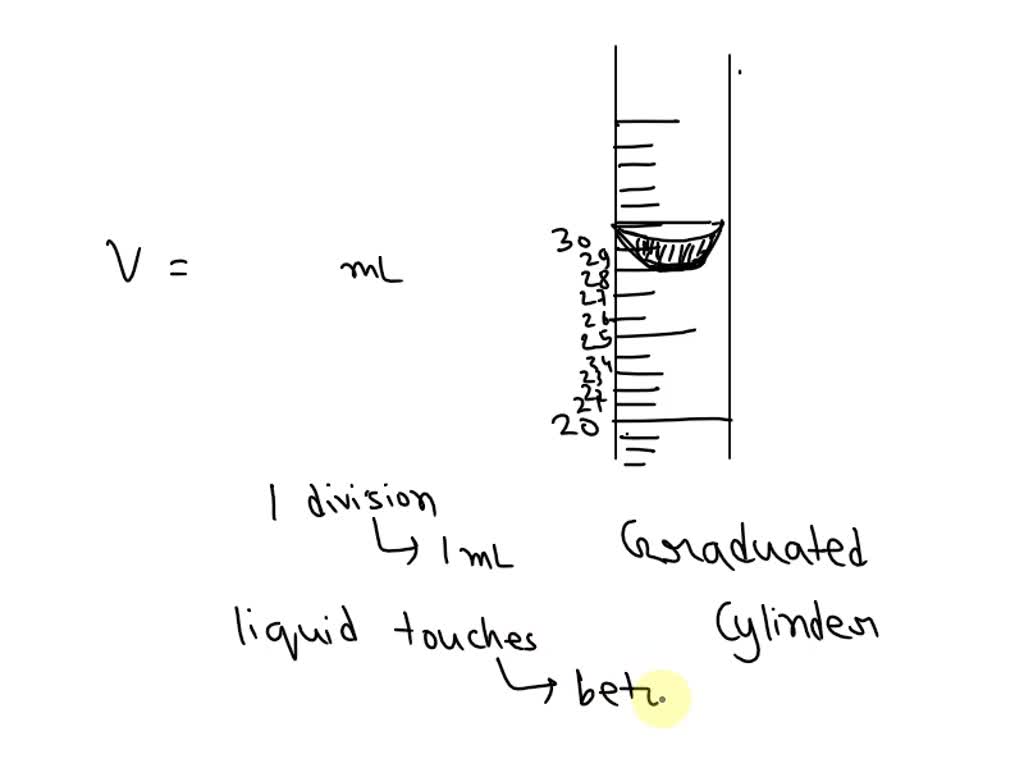 V = mL
30
29
28
27
26
25
34
23
20
1 division
↳ 1 mL
Graduated
Cylinder
liquid touches
↳ betr